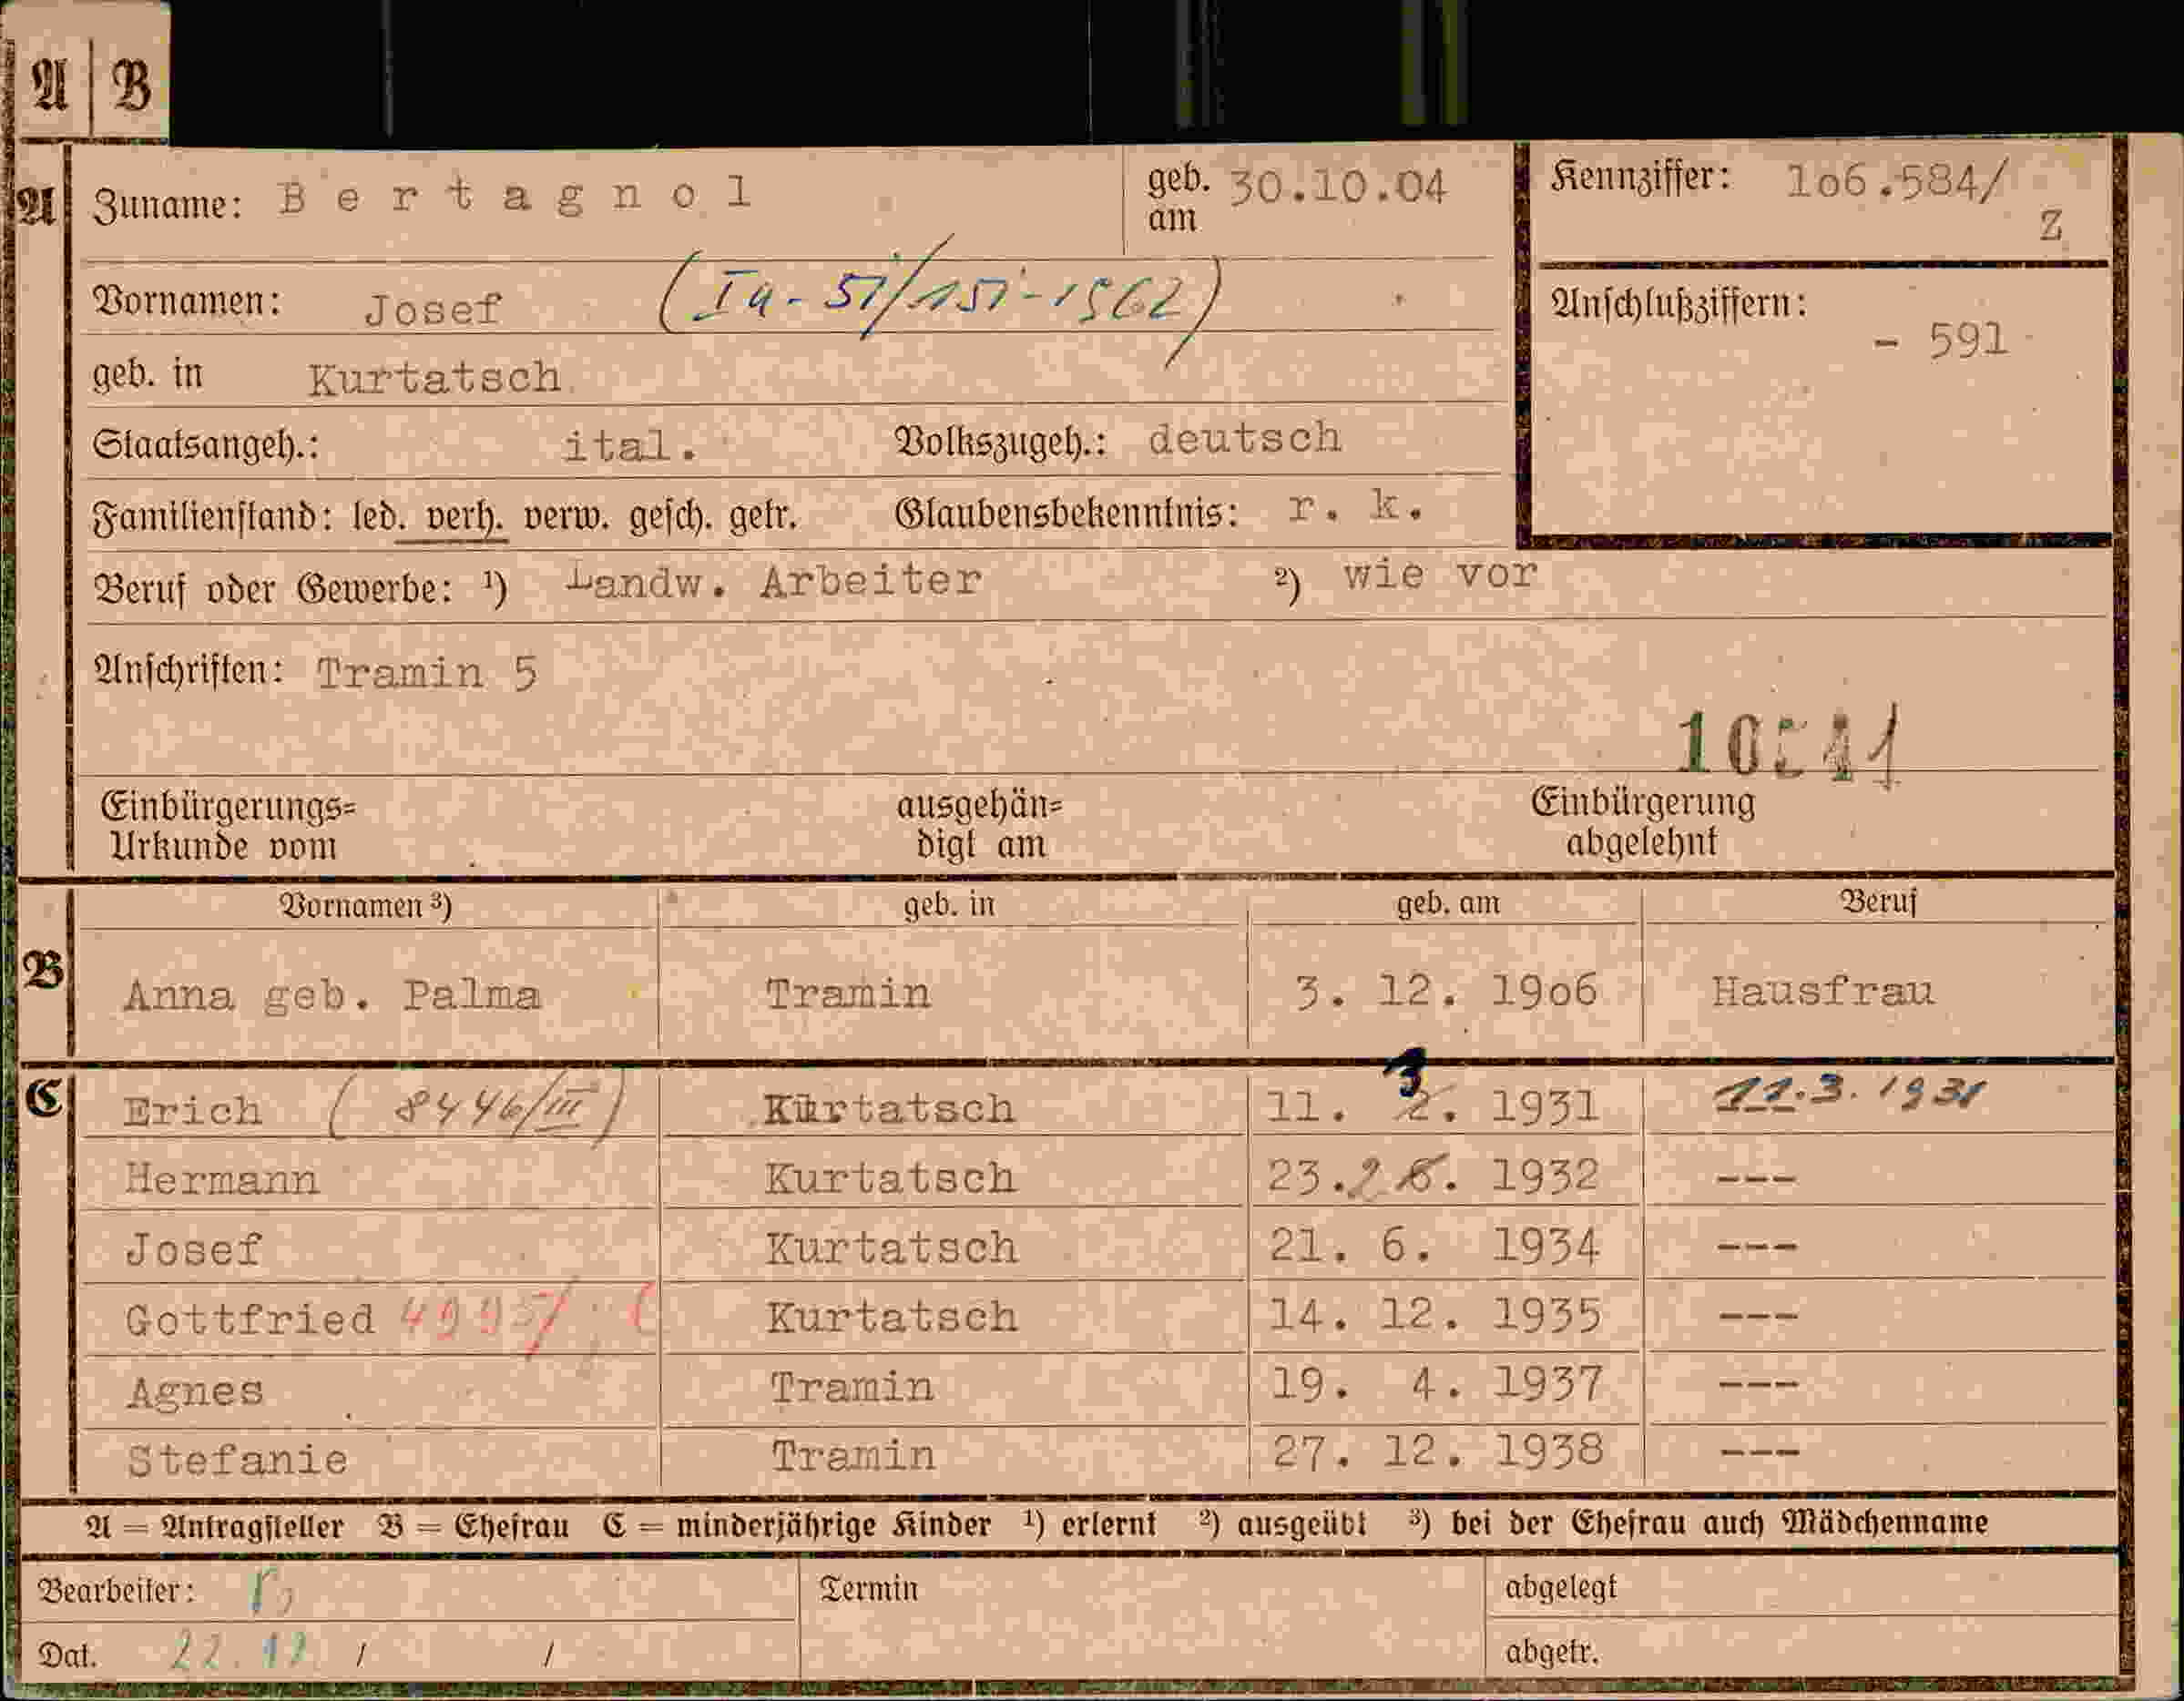 A | B
A Zuname: Bertagnol geb. am 30.10.04 Kennziffer: 1o6.584/Z
Vornamen: Josef (Ia-51/151-1562) Anschlußziffern: - 591
geb. in Kurtatsch
Staatsangeh.: ital. Volkszugeh.: deutsch
Familienstand: led. verh. verw. gesch. getr. Glaubensbekenntnis: r. k.
Beruf oder Gewerbe: ¹) Landw. Arbeiter ²) wie vor
Anschriften: Tramin 5
Einbürgerungs= ausgehän= Einbürgerung
Urkunde vom digt am abgelehnt
Vornamen ³) geb. in geb. am Beruf
B Anna geb. Palma Tramin 3. 12. 19o6 Hausfrau
C Erich (8446/III) Kurtatsch 11. 3. 1931 11.3.1931
Hermann Kurtatsch 23.2. 1932 ---
Josef Kurtatsch 21. 6. 1934 ---
Gottfried Kurtatsch 14. 12. 1935 ---
Agnes Tramin 19. 4. 1937 ---
Stefanie Tramin 27. 12. 1938 ---
A = Antragsteller B = Ehefrau C = minderjährige Kinder ¹) erlernt ²) ausgeübt ³) bei der Ehefrau auch Mädchenname
Bearbeiter: Termin abgelegt
Dat. 22.12 / / abgetr.